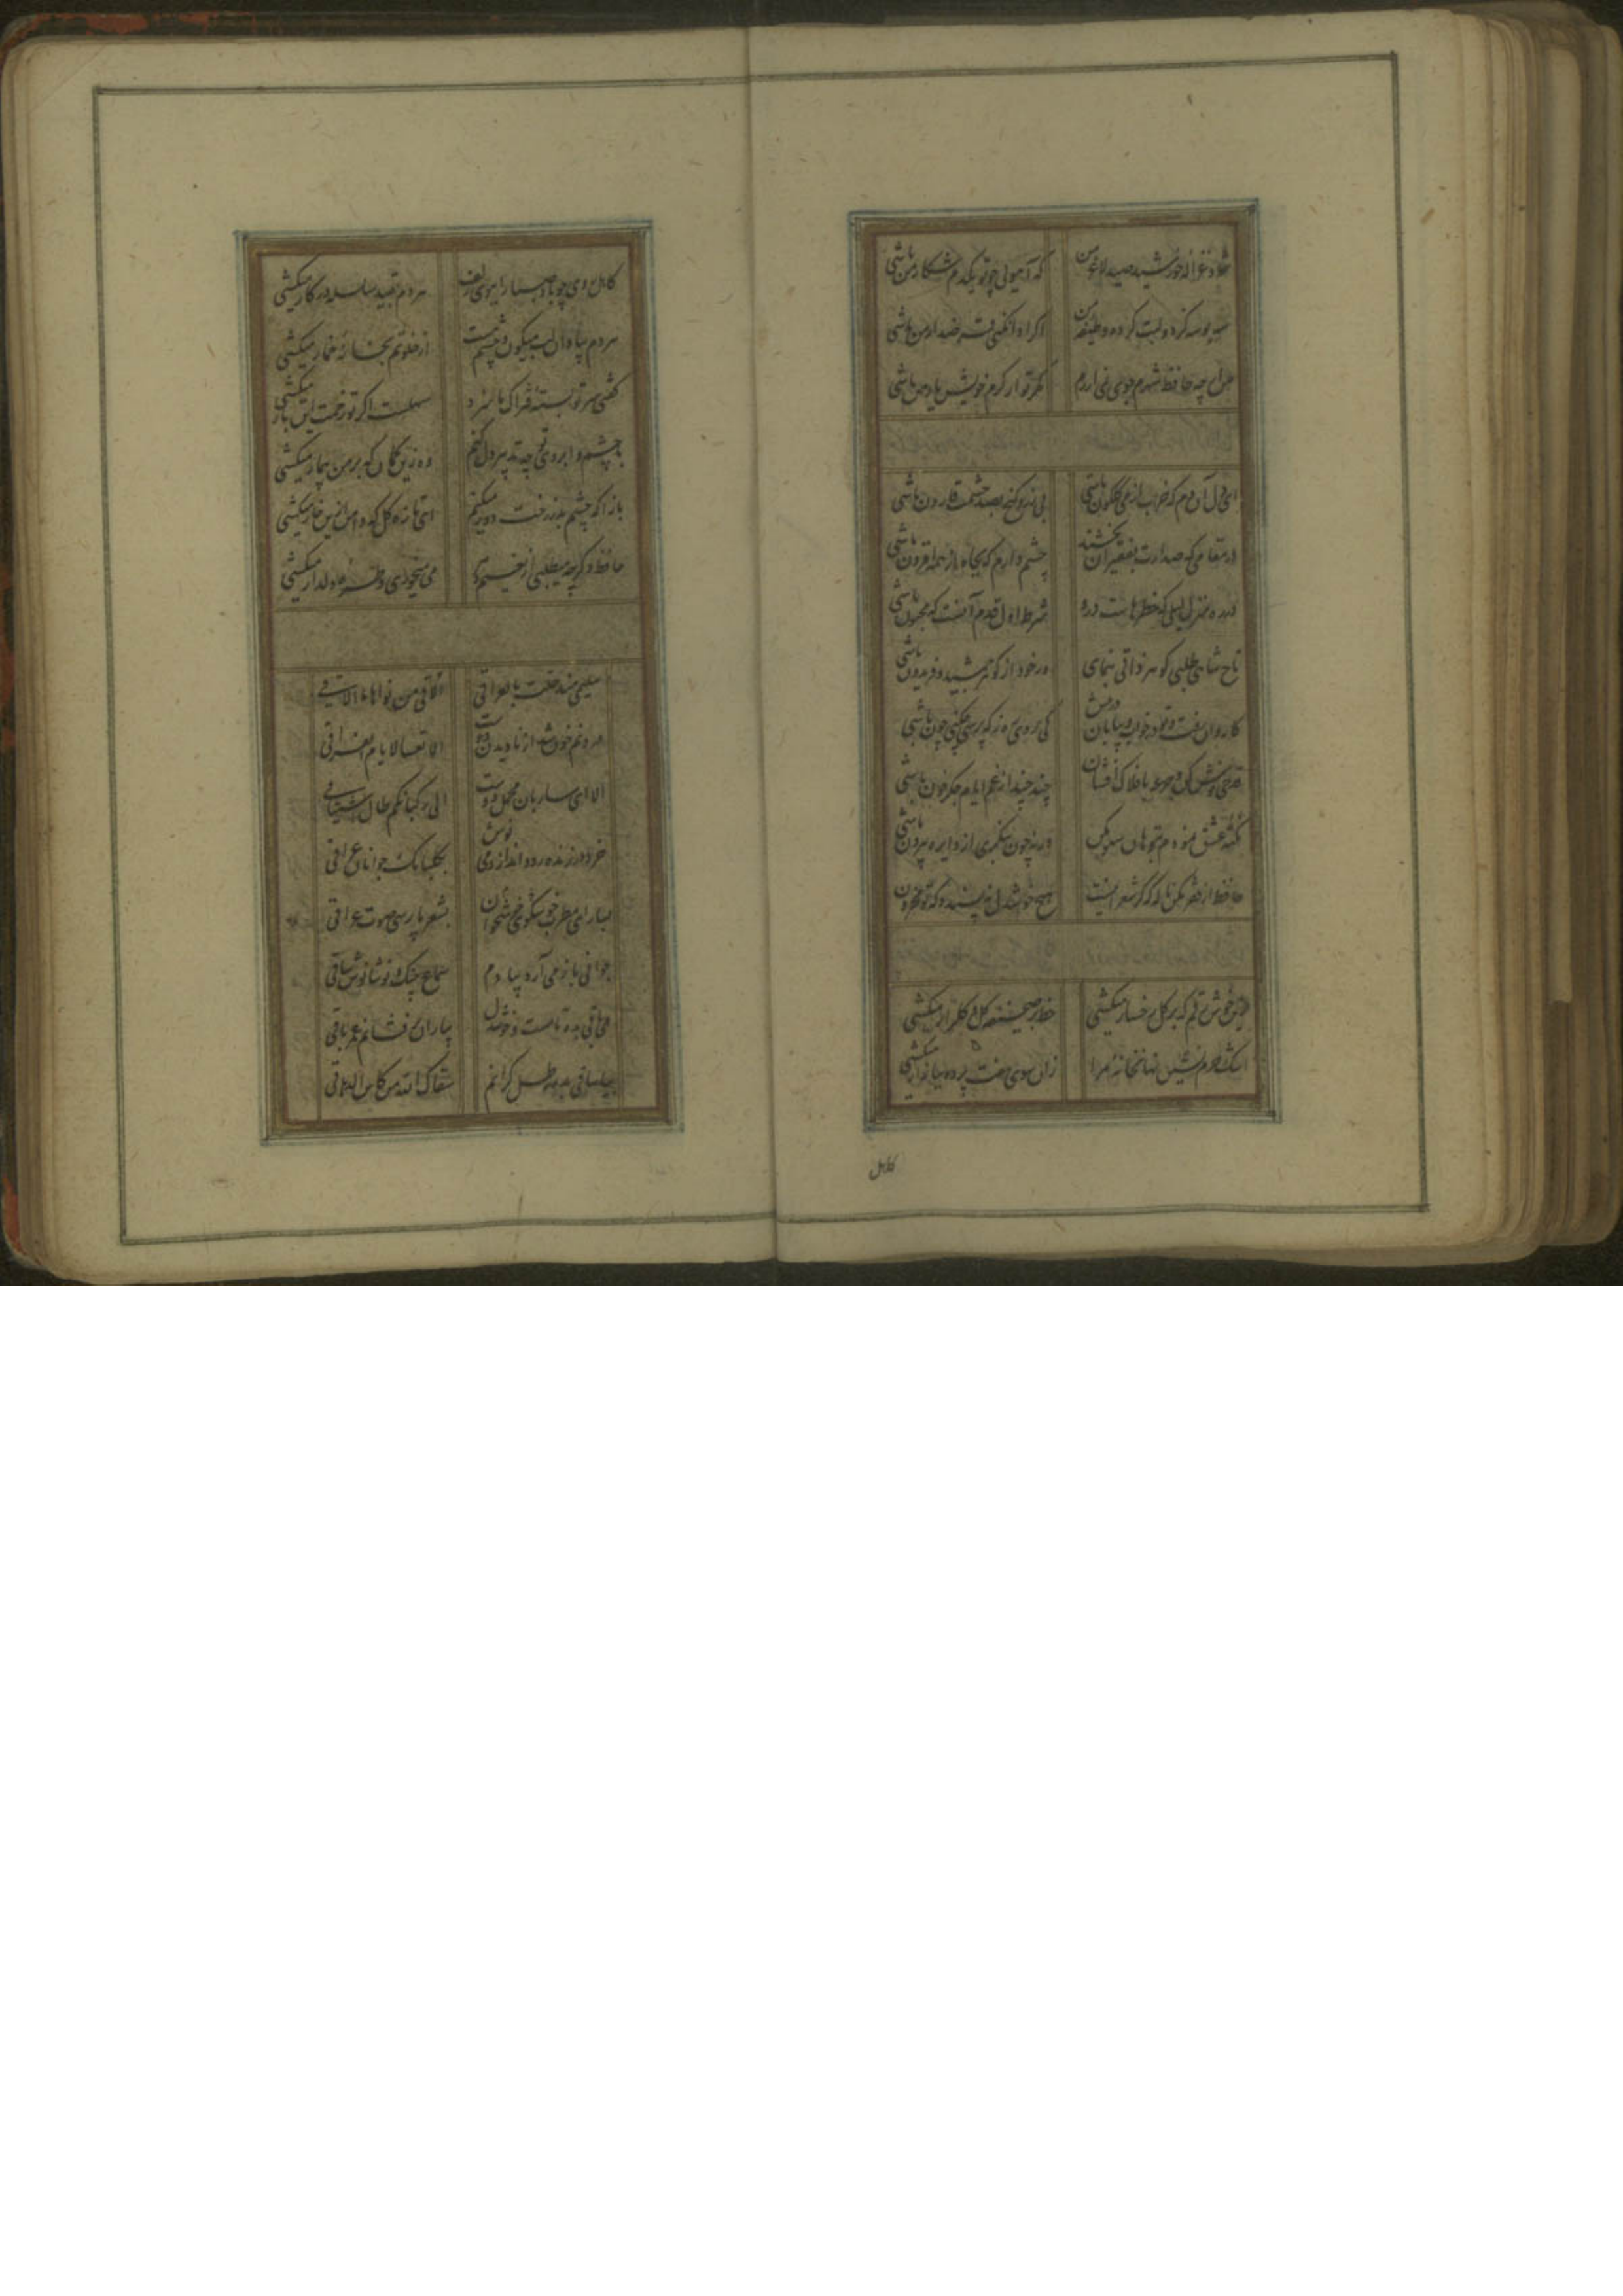 شود غزاله خورشید صید لاغر من
که آهویی چو تو یکدم شکار من باشی
سه بوسه کز دو لبت کرده وظیفه من
اگر ادا نکنی قرض دار من باشی
من ارچه حافظ شهرم جوی نمی ارزم
مگر تو از کرم خویش یار من باشی
ای دل آن دم که خراب از می گلگون باشی
بی زر و گنج بصد حشمت قارون باشی
در مقامی که صدارت بفقیران بخشند
چشم دارم که بجاه از همه افزون باشی
در ره منزل لیلی که خطرهاست درو
شرط اول قدم آنست که مجنون باشی
تاج شاهی طلبی گوهر ذاتی بنمای
ور خود از گوهر جمشید و فریدون باشی
کاروان رفت و تو در خواب و بیابان در پیش
کی روی ره ز که پرسی چکنی چون باشی
قدحی نوش کن و جرعه بافلاک افشان
چند چند از غم ایام جگر خون باشی
نکته عشق نمودم بتو هان سهو مکن
ورنه چون بنگری از دایره بیرون باشی
حافظ از فقر مکن ناله که گر شعر اینست
هیچ خوشدل نپسندد که تو محزون
خوش قلم که بر گل رخسار میکشی
خط بر صحیفه گل و گلزار میکشی
اشک حرم نشین نهانخانه مرا
زان سوی هفت پرده ببازار میکشی
کاهل
کاهل روی چو باد صبا را ببوی زلف
هر دم بقید سلسله در کار میکشی
هر دم بیاد آن لب میگون و چشم مست
از خلوتم بخانه خمار میکشی
گفتی سر تو بسته فتراک ما سزد
سهلست اگر تو زحمت این بار میکشی
با چشم و ابروی تو چه تدبیر دل کنم
وه زین کمان که بر من بیمار میکشی
باز آ که چشم بد ز رخت دور میکنم
ای تازه گل که دامن ازین خار میکشی
حافظ دگر چه میطلبی از نعیم دهر
می میخوری و طره دلدار میکشی
سلیمی منذ حلت بالعراق
الاقی من نواها ما الاقی
درونم خون شد از نادیدن دوست
الا تعسا لایام الفراق
الا ای ساربان محمل دوست
الی رکبانکم طال اشتیاقی
خرد در زنده رود انداز و می نوش
بگلبانگ جوانان عراقی
بیا ای مطرب خوشخوان خوشگوی
بشعر پارسی صوت عراقی
جوانی باز می آرد بیادم
سماع چنگ و نوشانوش ساقی
می باقی بده تا مست و خوشدل
بیاران برفشانم عمر باقی
بیا ساقی بده رطل گرانم
سقاک الله من کاس الدهاق